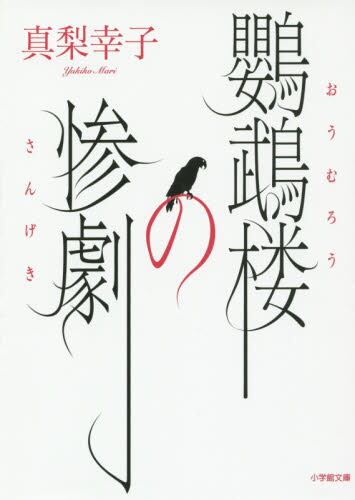 真梨幸子
Yukiko Mari
鸚鵡楼
おうむろう
の
惨劇
さんげき
小学館文庫